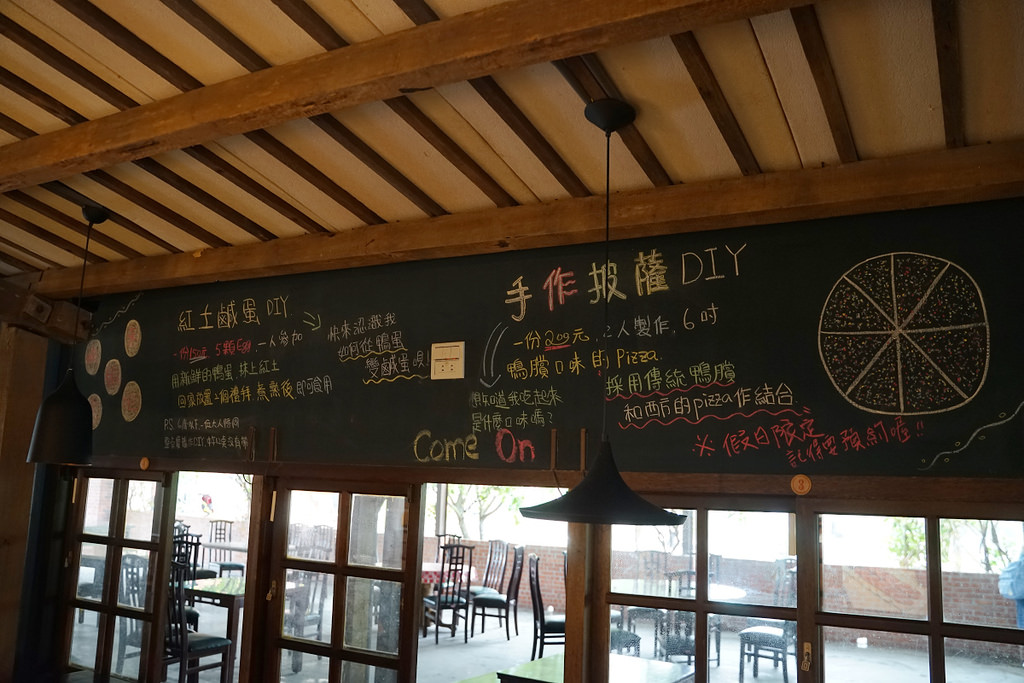 紅土鹹蛋 DIY
一份150元, 5顆, 一人參加
用新鮮的鴨蛋 抹上紅土
回家放置2個禮拜, 煮熟後 即可食用
快來認識我
如何從鴨蛋
變鹹蛋喔!
手作披薩DIY
一份200元, 2人製作, 6吋
鴨賞口味的Pizza.
想知道我吃起來
是什麼口味嗎?
採用傳統鴨賞
和西方的pizza作結合
※ 假日限定
記得要預約喔!!
Come On
3